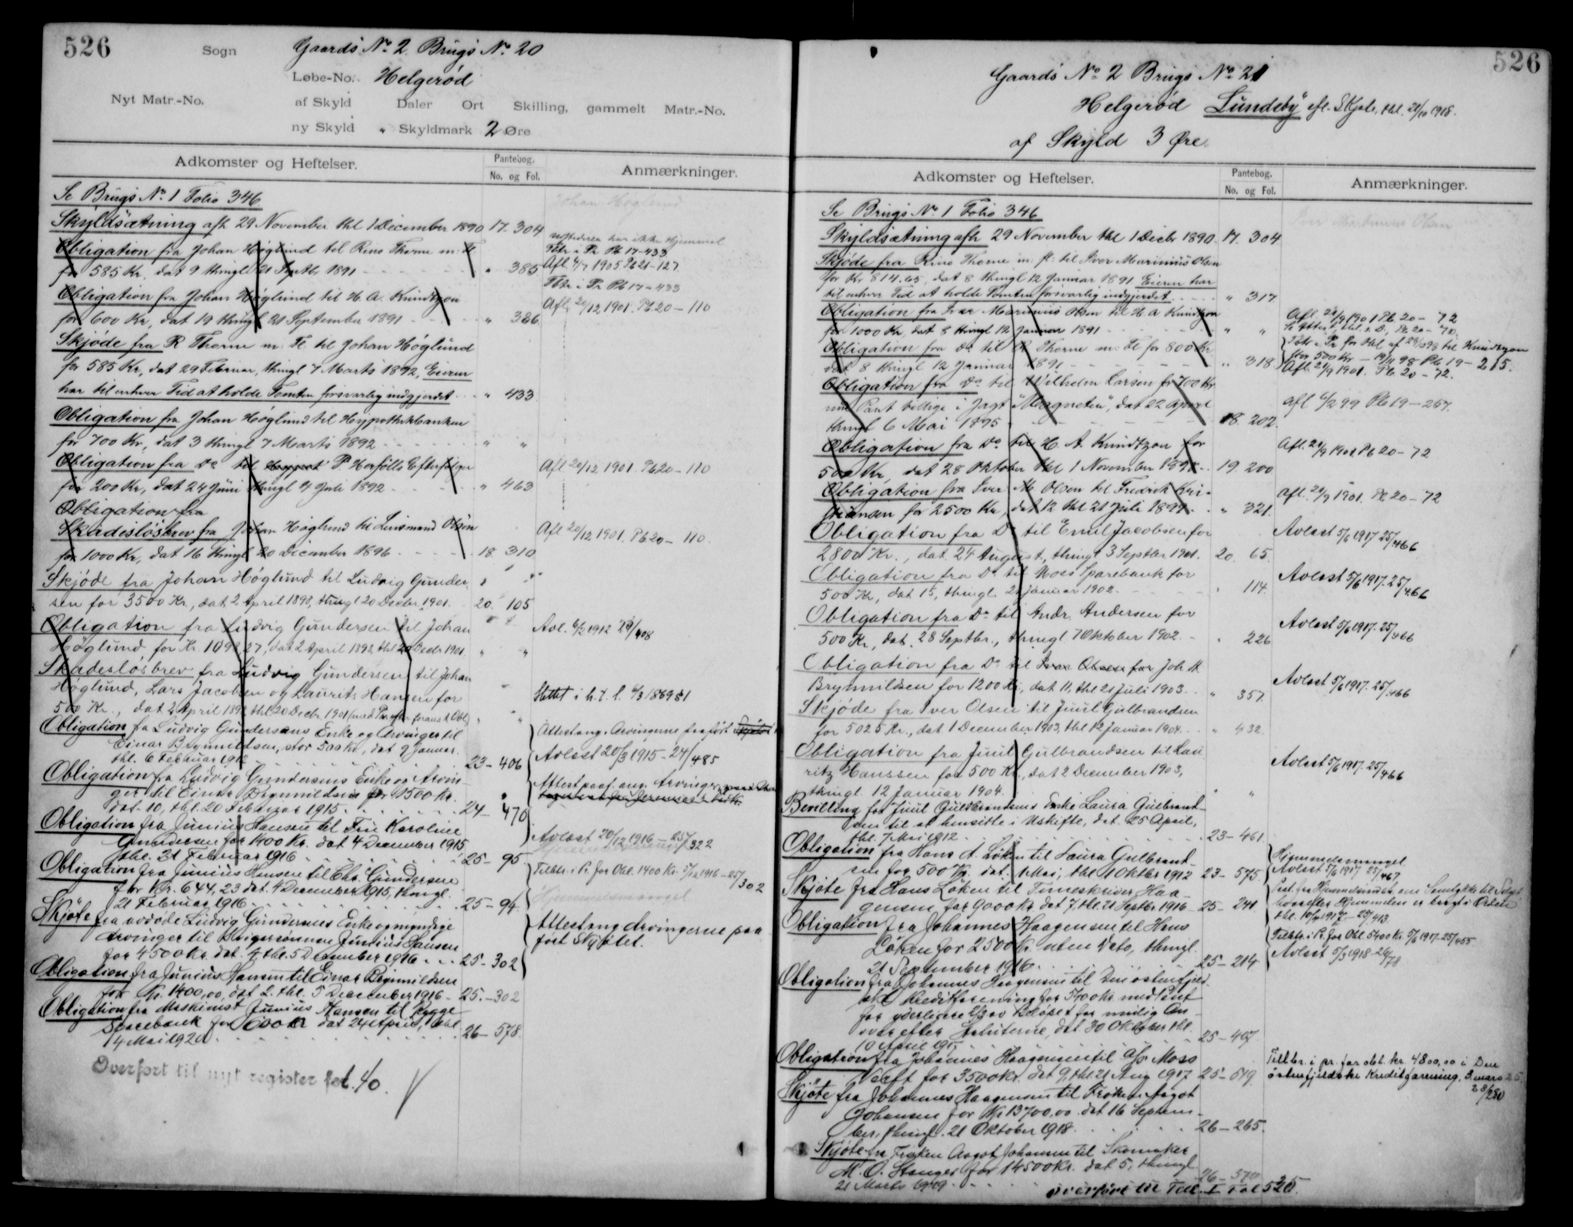 526
Sogn
Gaards No. 2 Brugs No. 20
Løbe-No. Helgerød
Nyt Matr.-No. af Skyld Daler Ort Skilling, gammelt Matr.-No.
ny Skyld " Skyldmark 2 Øre
Adkomster og Heftelser. Pantebog. No. og Fol. Anmærkninger.
Se Brugs No. 1 Folio 346
Skyldsætning afh 29 November thl 1 December 1890 17. 304
Obligation fra Johan Höglund til Rino Thorne m. fl
for 585 Kr. dat 9 thingl 21 Septb. 1891 " 385
Obligation fra Johan Höglund til H. A. Knudtzon
for 600 Kr, dat 19 thingl 21 September 1891 " 386
Skjöde fra R Thorne m. fl til Johan Höglund
for 585 Kr, dat 29 Februar, thingl 7 Marts 1892, Eieren
har til enhver Tid at holde Tomten forsvarlig indgjerdet " 433
Obligation fra Johan Höglund til Hypothekbanken
for 700 Kr, dat 3 thingl 7 Marts 1892 " "
Obligation fra Do til P Horföll Efterfölger
for 200 Kr, dat 24 Juni thingl 4 Juli 1892 " 463
Obligation fra
Skadeslösbrev fra Johan Höglund til Lensmand Olsen
for 1000 Kr, dat 16 thingl 20 December 1896 18 310
Skjöde fra Johan Höglund til Ludvig Gunder
sen for 3500 Kr, dat 2 April 1898, thingl 20 Decbr. 1901 20. 105
Obligation fra Ludvig Gundersen til Johan
Höglund, for Kr dat 2 April 1898, thl 20 Decbr 1901 " "
Skadeslösbrev fra Ludvig Gundersen til Johan
Höglund, Lars Jacobsen og Laurits Hansen for
500 Kr., dat 2 April 1898 thl 20 Decbr. 1901 " "
Obligation fra Ludvig Gundersens Enke og Arvinger til
Einar Brynildsen, dat 9 Januar
thl. 6 Februar 23-406
Obligation fra Ludvig Gundersens Enke og Arvin
ger til Einar Brynildsen for 1500 kr.
dat. 10, thl. 20 Februar 1915 24-470
Obligation fra Junius Hansen til Fru Karoline
Gundersen for 1400 Kr. dat 4 December 1915
thl. 21 Februar 1916 25-95
Obligation fra Junius Hansen til Chr. Gundersen
for Kr. 644,23 dat. 4 December 1915, thingl.
21 Februar 1916 25-94
Skjöte fra Ludvig Gundersens Enke og myndige
Arvinger til Junius Hansen
for 4500 Kr. dat. thl. 5 December 1916 25-302
Obligation fra Junius Hansen til Einar Brynildsen
for Kr. 1400,00, dat 2. thl. 5 December 1916 25-302
Obligation fra Maskinist Junius Hansen til Rygge
Sparebank for dat 24 April, thl
4 Mai 1920 26-578
Overført til nyt register fol. 40.
Johan Höglund
Tktr. i Pr Pb 17-433
Afl 4/7 1905 Pb 21-127
Tktr. i Pr Pb 17-433
Afl. 20/12 1901. Pb 20-110
Afl 20/12 1901. Pb 20-110
Afl 20/12 1901. Pb 20-110.
Avl. 6/2 1912 23/408
Attest ang. Arvingerne
Avlæst 20/3 1915-24/485
Attest paaf. ang. Arvinger
Avlæst 20/12 1916-25/322
Tilbtr. i Pr. for Obl. 1400 Kr. 1916-25/302
Hjemmelsmangel
Attest ang Arvingerne paa
fört Skjötet.
526
Gaards No. 2 Brugs No. 21
Helgerød "Lundeby" efl. Skjøte, thl. 21/10 1918.
af Skyld 3 Øre
Adkomster og Heftelser. Pantebog. No. og Fol. Anmærkninger.
Se Brugs No. 1 Folio 346
Skyldsætning afh 29 November thl 1 Decbr 1890. 17. 304
Skjöde fra Rino Thorne m. fl. til Iver Marinius Olsen
for Kr 814.65, dat 8 thingl 12 Januar 1891 Eieren har
til enhver Tid at holde Tomten forsvarlig indgjerdet " 317
Obligation fra Iver Marinius Olsen til H A Knudtzon
for 1000 Kr, dat 8 thingl 12 Januar 1891 " "
Obligation fra Do til R Thorne m. fl for 800 Kr
dat 8 thingl 12 Januar 1891 " 318
Obligation fra Do til Wilhelm Larsen for 700 Kr
med Pant tillige i Jagt "Magneten", dat 22 April
thingl 6 Mai 1895 18. 202
Obligation fra Do til H. A. Knudtzon for
500 Kr, dat 28 Oktober thl 1 November 1898 19 200
Obligation fra Iver M. Olsen til Fredrik Kri-
stiansen for 2500 Kr, dat 12 thl 21 Juli 1899 " 321
Obligation fra Do til Emil Jacobsen for
2800 Kr., dat. 24 August, thingl. 3 Septbr 1901. 20. 65.
Obligation fra Do til Moss Sparebank for
500 Kr, dat 15, thingl. 2 Januar 1902. " 114.
Obligation fra Do til Andr. Andersen for
500 Kr, dat. 28 Septbr., thingl 7 Oktober 1902 " 226
Obligation fra Do til Joh. M.
Brynnildsen for 1200 Kr, dat 11, thl 21 Juli 1903. " 357.
Skjöde fra Iver Olsen til Juul Gulbrandsen
for 5025 Kr., dat 1 December 1903, thl 12 Januar 1904. " 432.
Obligation fra Juul Gulbrandsen til Lau
ritz Hanssen for 500 Kr, dat 2 December 1903,
thingl 12 Januar 1904. " "
Bevilling for Juul Gulbrandsens Enke Laura Gulbrand
sen til at hensitte i Uskifte, dat 25 April,
thl. 7 Mai 1912 23-461
Obligation fra Hans A. Løken til Laura Gulbrand-
sen for 500 Kr. dat. thl. 1 Oktbr 1912 23-575
Skjöte fra Hans Løken til Tinneskriver Haa
gensen for 9000 Kr dat 7, thl 21 Septbr 1916 25-241
Obligation fra Johannes Haagensen til Hans
Løken for 2500 Kr. uden Dato, thingl.
21 September 1916 25-214
Obligation fra Johannes Haagensen til Den østenfjeld
ske Kreditforening for 5400 Kr med Pant
for yderligere 1/5 av Beløpet for mulig An
svar efter Statuterne dat 30 Oktober thl.
10 April 1917 25-407
Obligation fra Johannes Haagensen til A/S Moss
Værft for 3500 Kr. dat 9, thl 21 Aug 1917 25-519
Skjöte fra Johannes Haagensen til Frøken Aagot
Johansen for Kr 13700,00 dat 16 Septem-
ber, thingl. 21 Oktober 1918 26-265.
Skjöte fra Frøken Aagot Johansen til Skomaker
M. O. Stenger for 14500 Kr. dat 5, thingl
21 Marts 1919 26-370
Overført til Fol. I Fol 525.
Iver Marinius Olsen
Afl. 24/9 1901 Pb 20-72
Afl. 24/9 1901. Pb 20-72.
Afl 6/2 99 Pb 19-257.
Afl. 24/9 1901 Pb 20-72
Afl. 24/9 1901. Pb 20-72
Avlæst 5/6 1917 25/466
Avlæst 5/6 1917. 25/466
Avlæst 5/6 1917. 25/466
Avlæst 5/6 1917. 25/466
Avlæst 5/6 1917. 25/466
Hjemmelsmangel
Avlæst 5/6 1917 25/467
Tilbtr. i Pr. for Obl. 5400 Kr. 1917-25/455
Avlæst 5/3 1918-26/78
Tilbtr. i pr. for obl. kr. 4800,00 i Den
østenfjeldske Kreditforening, 3 mars 25.
28/280